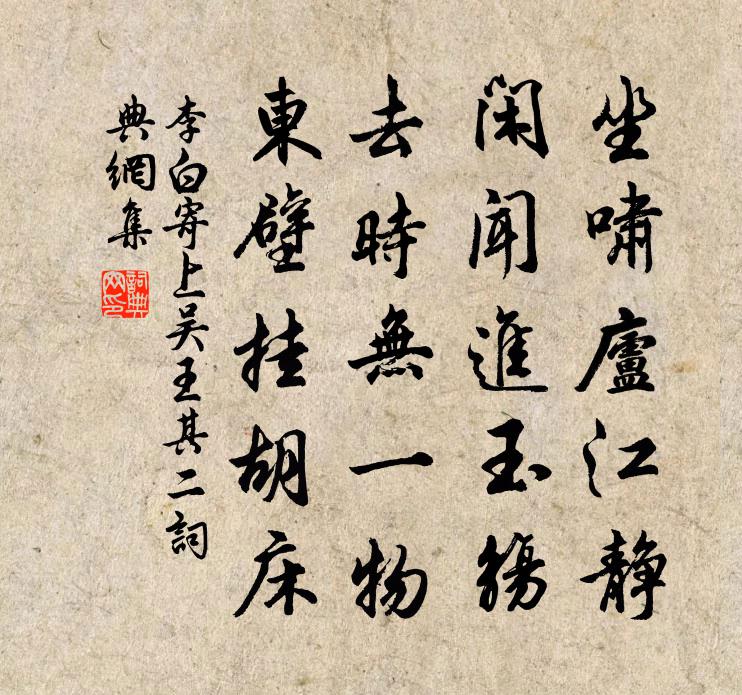 坐嘯廬江靜
閑聞進玉觴
去時無一物
東壁挂胡床
李白寄上吴王其二詞
典網集
詞典
网印